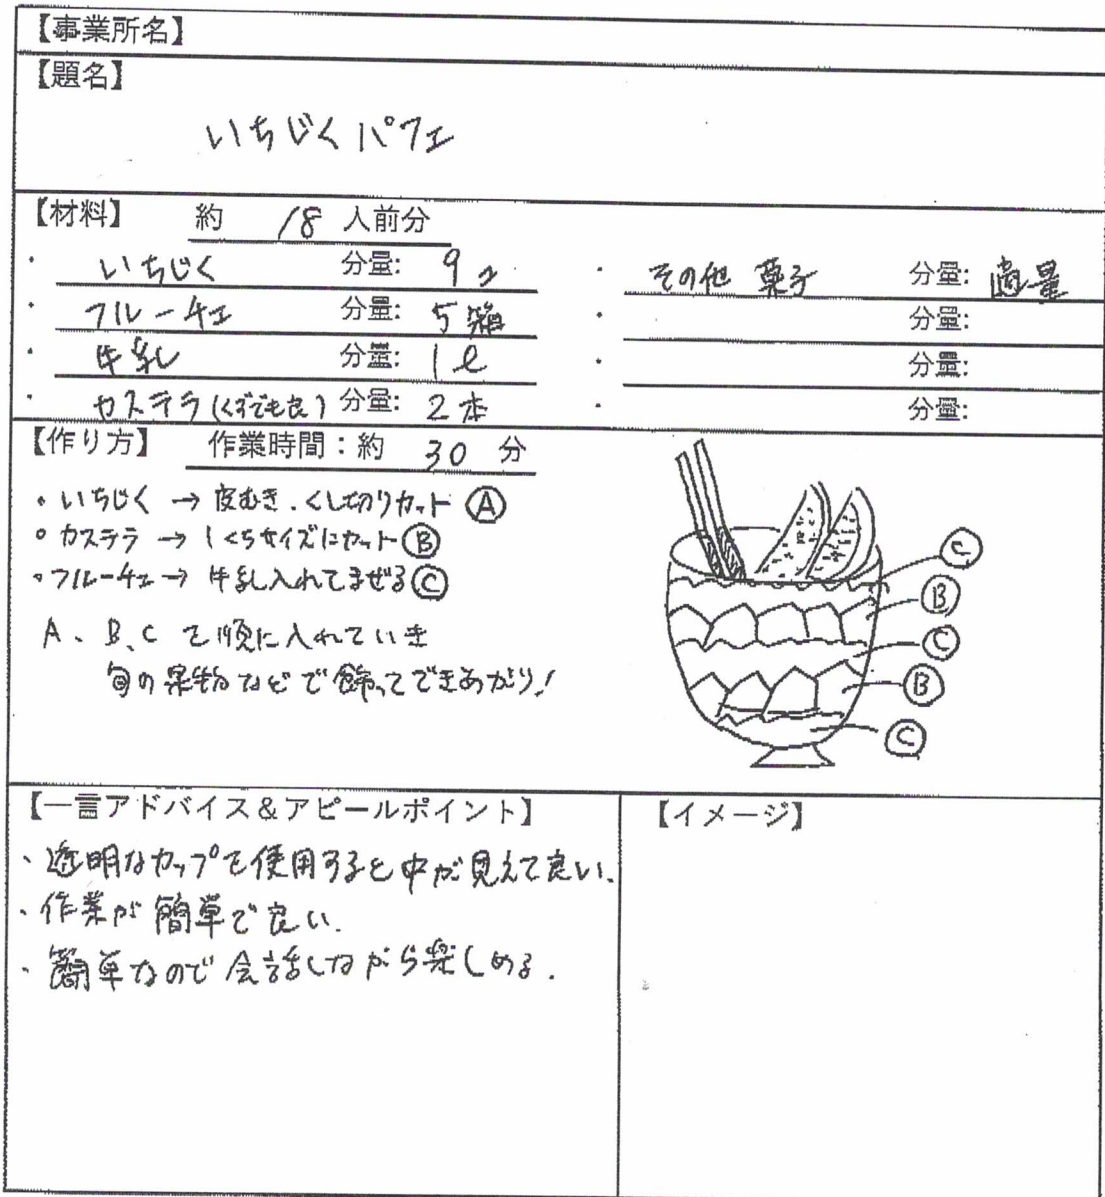 【事業所名】
【題名】
いちじくパフェ
【材料】 約 18 人前分
・ いちじく 分量: 9コ ・ その他 菓子 分量: 適量
・ フルーチェ 分量: 5箱 ・ 分量:
・ 牛乳 分量: 1ℓ ・ 分量:
・ カステラ(くずでも良) 分量: 2本 ・ 分量:
【作り方】 作業時間:約 30 分
・いちじく → 皮むき、くし切りカット Ⓐ
・カステラ → 1くちサイズにカット Ⓑ
・フルーチェ → 牛乳入れてまぜる Ⓒ
A、B、Cを順に入れていき
旬の果物などで飾ってできあがり!
Ⓒ
Ⓑ
Ⓒ
Ⓑ
Ⓒ
【一言アドバイス&アピールポイント】
・透明なカップを使用すると中が見えて良い.
・作業が簡単で良い.
・簡単なので会話しながら楽しめる.
【イメージ】